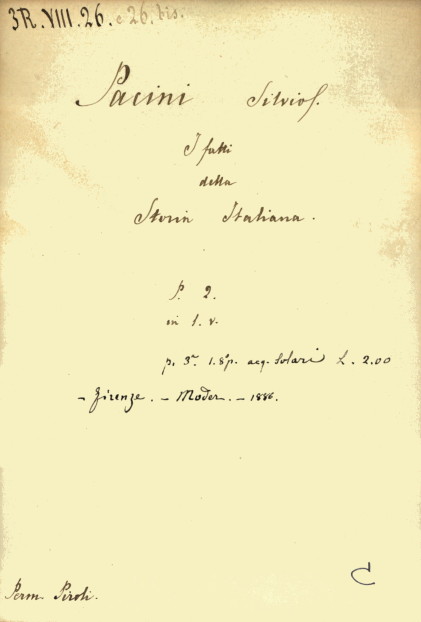 3R.VIII.26. e 26. bis.
Pacini Silvio.
I fatti
della
Storia Italiana.
P. 2.
in 1. v.
p. 3ª 1. 8º p. acq. Solari L. 2.00
- Firenze. - Moder. - 1886.
C
Perm. Piroli.